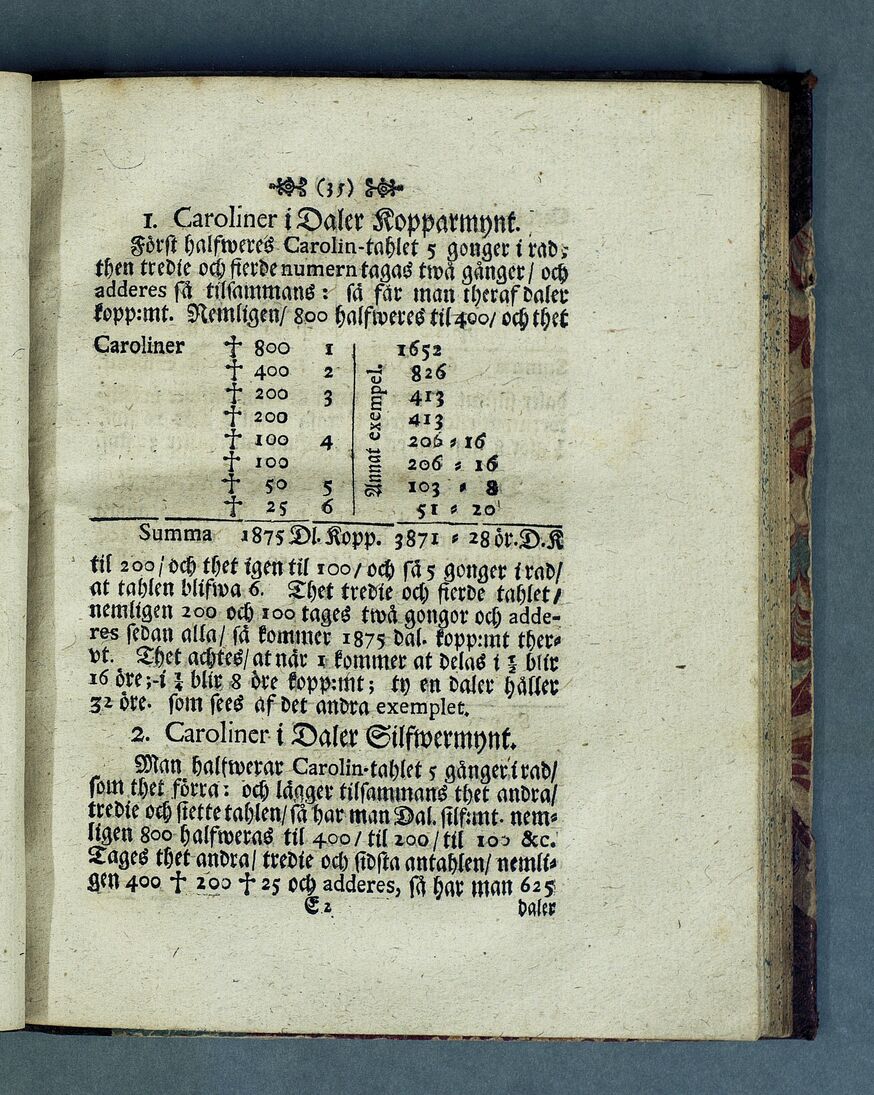 (35)
1. Caroliner i Daler Kopparmynt.
Först halfweres Carolin-tahlet 5 gonger i rad;
then tredie och fierde numern tagas twå gånger/ och
adderes så tilsammans: så får man theraf daler
kopp:mt. Nemligen/ 800 halfweres til 400/ och thet
Caroliner † 800 1 1652
† 400 2 826
† 200 3 413
† 200 413
† 100 4 206 = 16
† 100 206 = 16
† 50 5 103 = 8
† 25 6 51 = 20
Annat exempel.
Summa 1875 Dl. Kopp. 3871 = 28 ör. D.K
til 200/ och thet igen til 100/ och så 5 gonger i rad/
at tahlen blifwa 6. Thet tredie och fierde tahlet/
nemligen 200 och 100 tages twå gongor och adde-
res sedan alla/ så kommer 1875 dal. kopp:mt ther=
vt. Thet achtes/ at når 1 kommer at delas i ½ blir
16 öre;-i ¼ blir 8 öre kopp:mt; ty en daler håller
32 öre. som sees af det andra exemplet.
2. Caroliner i Daler Silfwermynt.
Man halfwerar Carolin-tahlet 5 gånger i rad/
som thet förra: och lägger tilsammans thet andra/
tredie och siette tahlen/ så har man Dal. silf:mt. nem=
ligen 800 halfweras til 400/ til 200/ til 100 &c.
Tages thet andra/ tredie och sidsta antahlen/ nemli=
gen 400 † 200 † 25 och adderes, så har man 625
E 2 daler